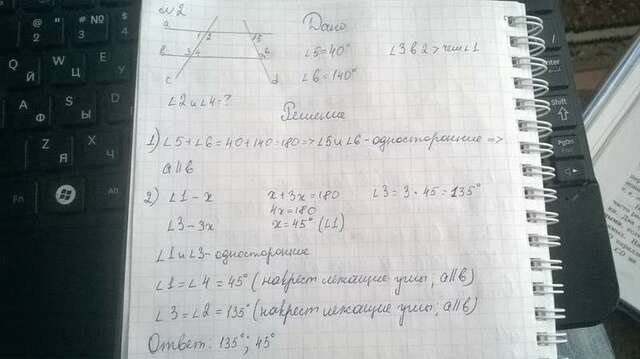 №2
a
1 2
15
Дано
b
3 4
6
∠5=40°
∠3 в 2 > чем ∠1
c
d
∠6=140°
∠2 и ∠4=?
Решение
1) ∠5+∠6=40+140=180=>∠5 и ∠6-односторонние =>
a∥b
2) ∠1-x x+3x=180 ∠3=3·45=135°
4x=180
∠3-3x x=45°(∠1)
∠1 и ∠3-односторонние
∠1=∠4=45° (накрест лежащие углы, a∥b)
∠3=∠2=135° (накрест лежащие углы, a∥b)
Ответ: 135°; 45°
@
2
"
#
№
3
Й
Ц
Ы
Я
Fn
Shift
PgDn
End